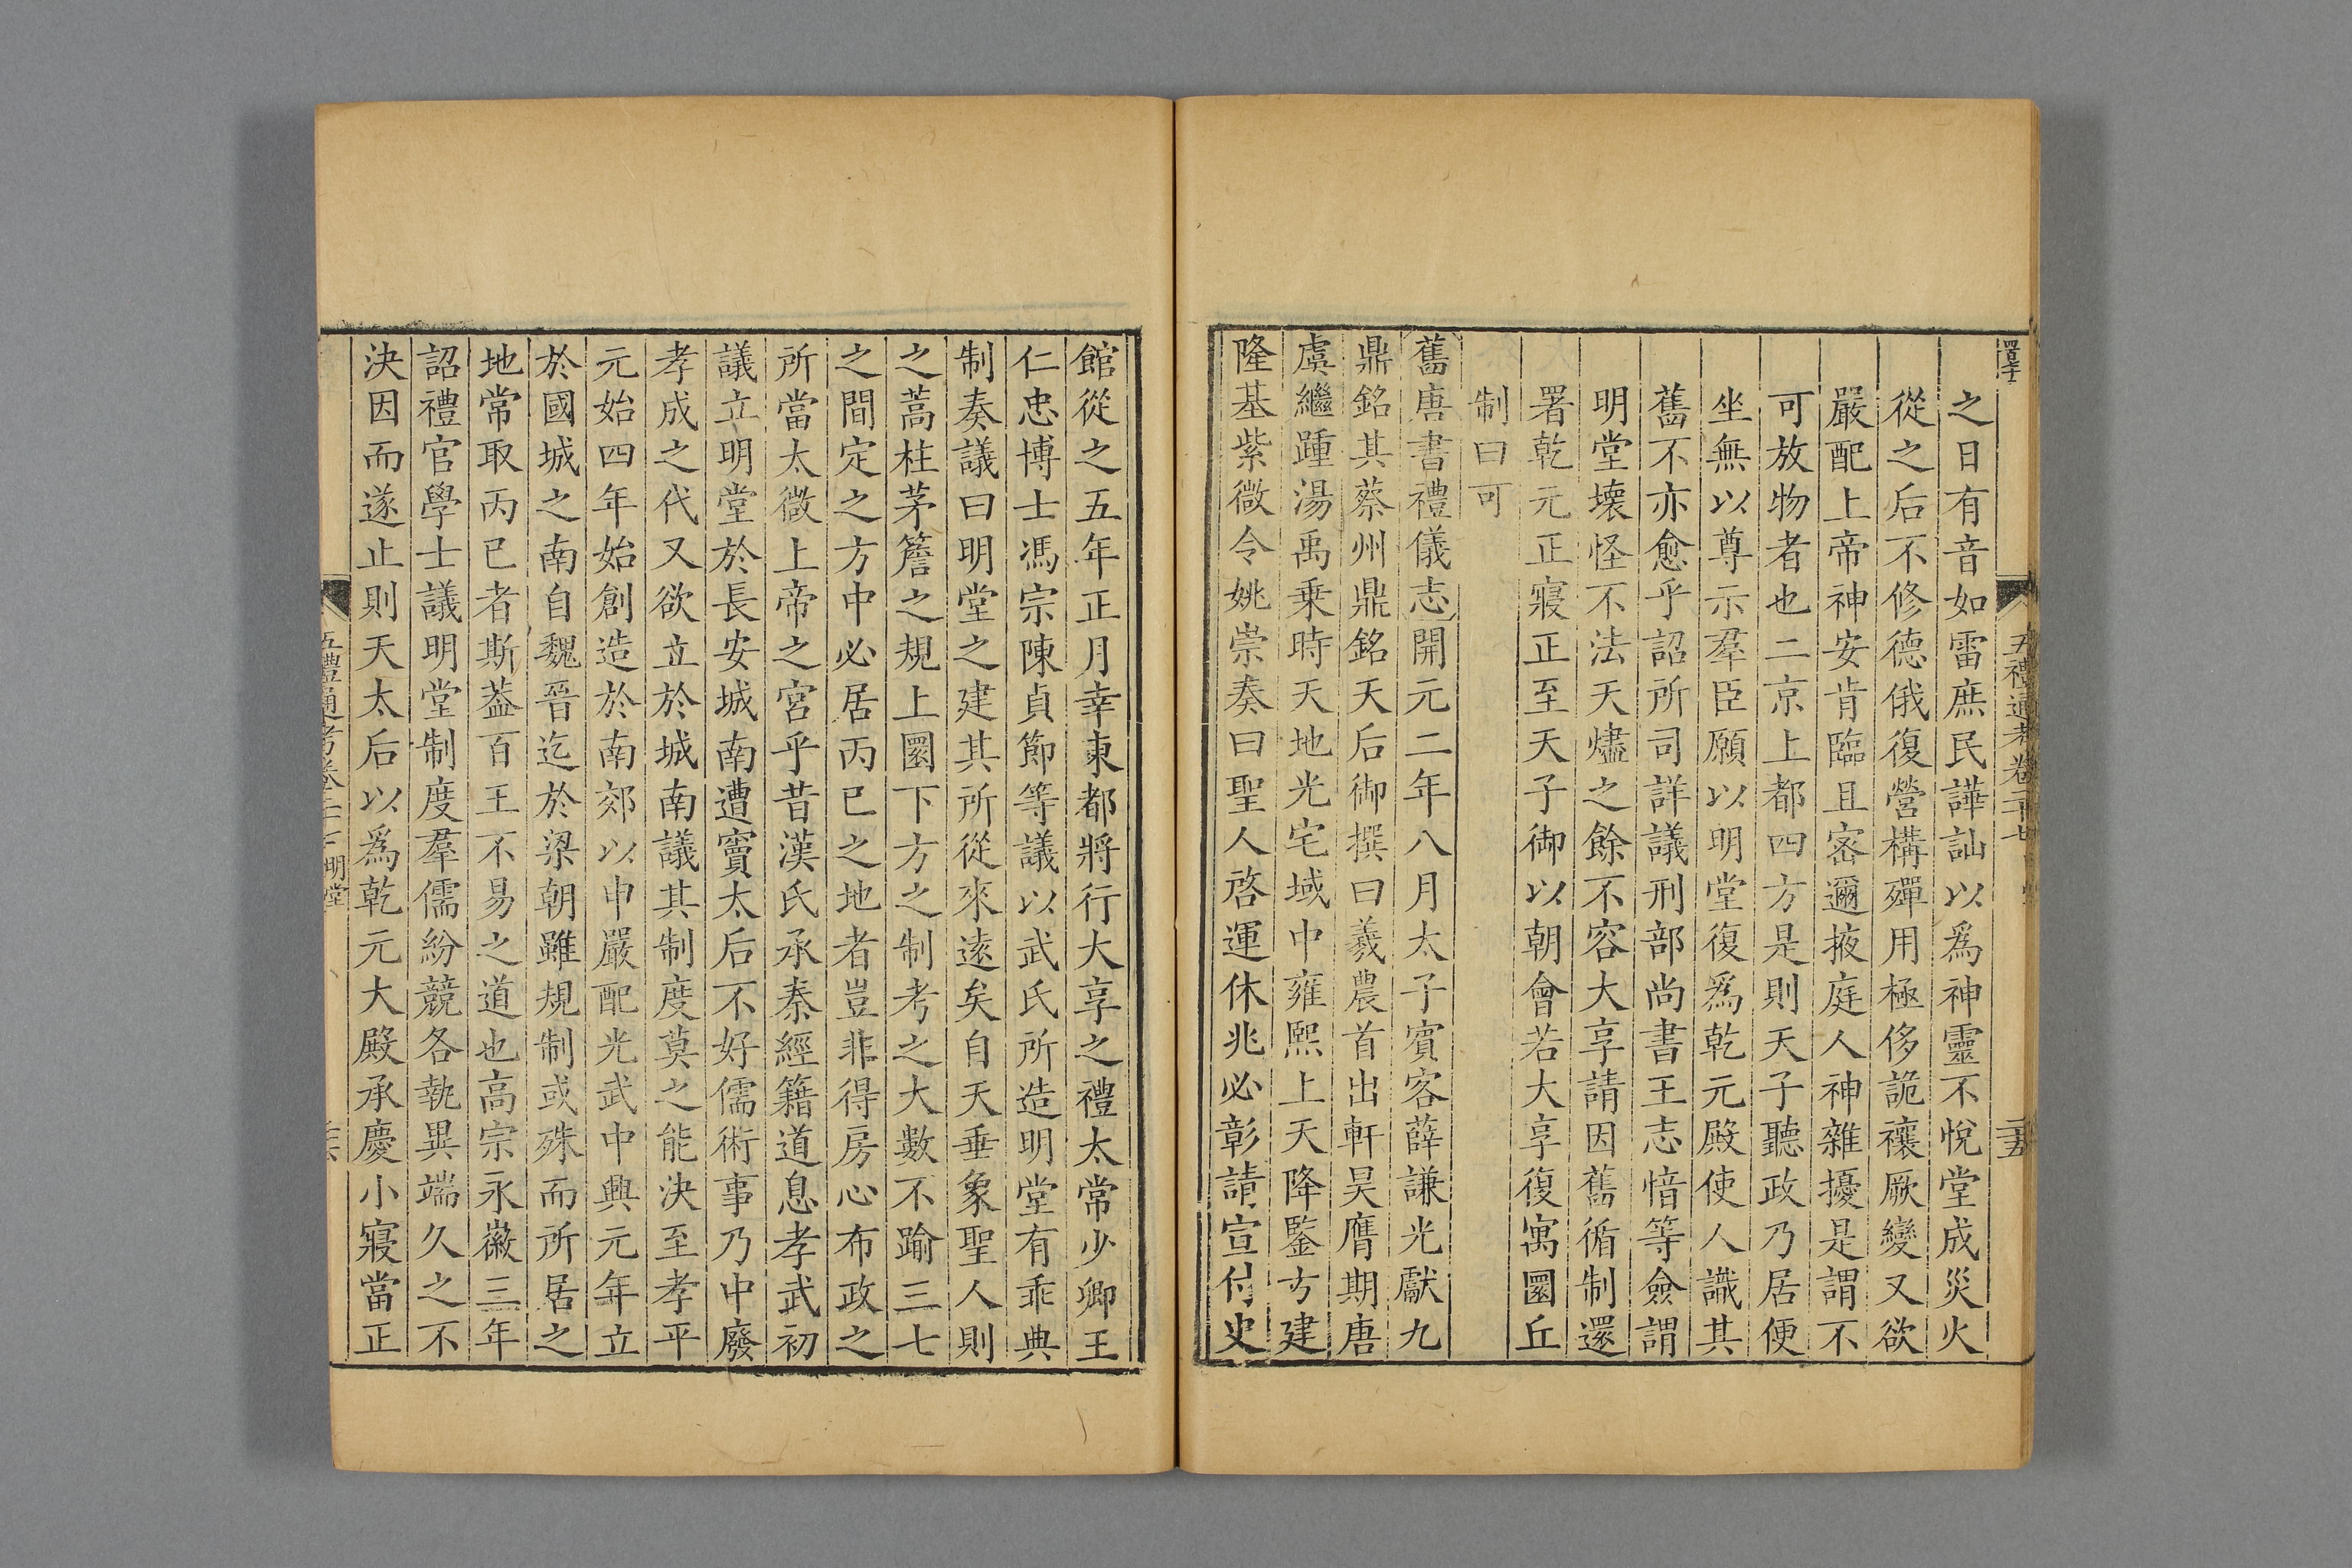 之日有音如雷庶民譁訕以爲神靈不悅堂成災火
從之后不修德俄復營構殫用極侈詭禳厥變又欲
嚴配上帝神安肯臨且密邇掖庭人神雜擾是謂不
可放物者也二京上都四方是則天子聽政乃居便
坐無以尊示羣臣願以明堂復爲乾元殿使人識其
舊不亦愈乎詔所司詳議刑部尚書王志愔等僉謂
明堂壞怪不法天燼之餘不容大享請因舊循制還
署乾元正寢正至天子御以朝會若大享復寓圜丘
制曰可
舊唐書禮儀志開元二年八月太子賓客薛謙光獻九
鼎銘其蔡州鼎銘天后御撰曰羲農首出軒昊膺期唐
虞繼踵湯禹乘時天地光宅域中雍熙上天降鑒方建
隆基紫微令姚崇奏曰聖人啓運休兆必彰請宣付史
館從之五年正月幸東都將行大享之禮太常少卿王
仁忠博士馮宗陳貞節等議以武氏所造明堂有乖典
制奏議曰明堂之建其所從來遠矣自天垂象聖人則
之蒿柱茅簷之規上圜下方之制考之大數不踰三七
之間定之方中必居丙巳之地者豈非得房心布政之
所當太微上帝之宮乎昔漢氏承秦經籍道息孝武初
議立明堂於長安城南遭竇太后不好儒術事乃中廢
孝成之代又欲立於城南議其制度莫之能決至孝平
元始四年始創造於南郊以申嚴配光武中興元年立
於國城之南自魏晉迄於梁朝雖規制或殊而所居之
地常取丙巳者斯葢百王不易之道也高宗永徽三年
詔禮官學士議明堂制度羣儒紛競各執異端久之不
決因而遂止則天太后以爲乾元大殿承慶小寢當正
五禮通考卷二十 明堂